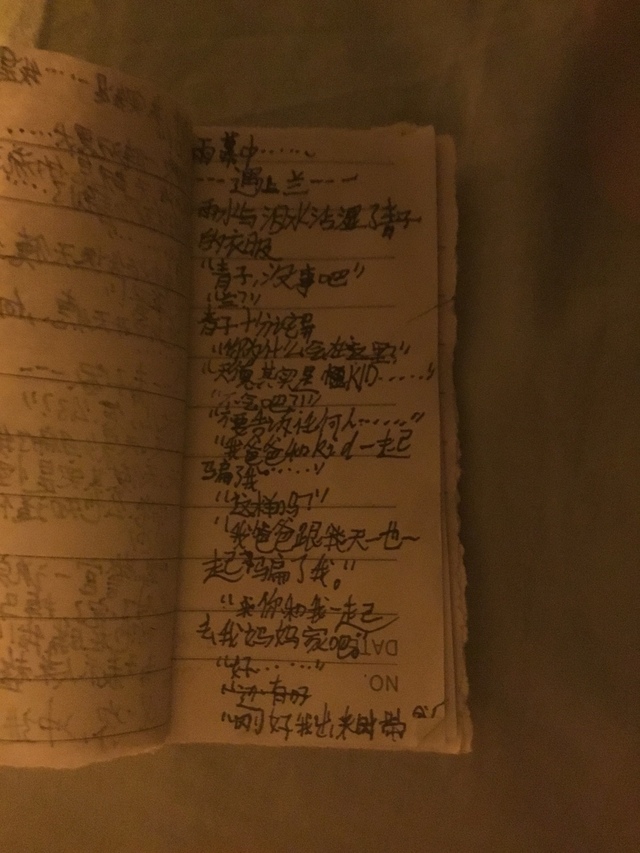 雨幕中……
---遇上兰---
雨水与泪水沾湿了青子
的衣服
"青子,没事吧"
"兰?"
青子十分诧异
"你为什么会在这里?"
"其实是怪KID……"
"不会吧?!"
"不要告诉任何人……"
"我爸爸和kid一起
骗了我……"
"这样吗?"
"我爸爸跟我天一也一
起骗了我。"
"来你和我一起
去我妈妈家吧"
"好……"
DATE
NO.
"刚好我出来时带